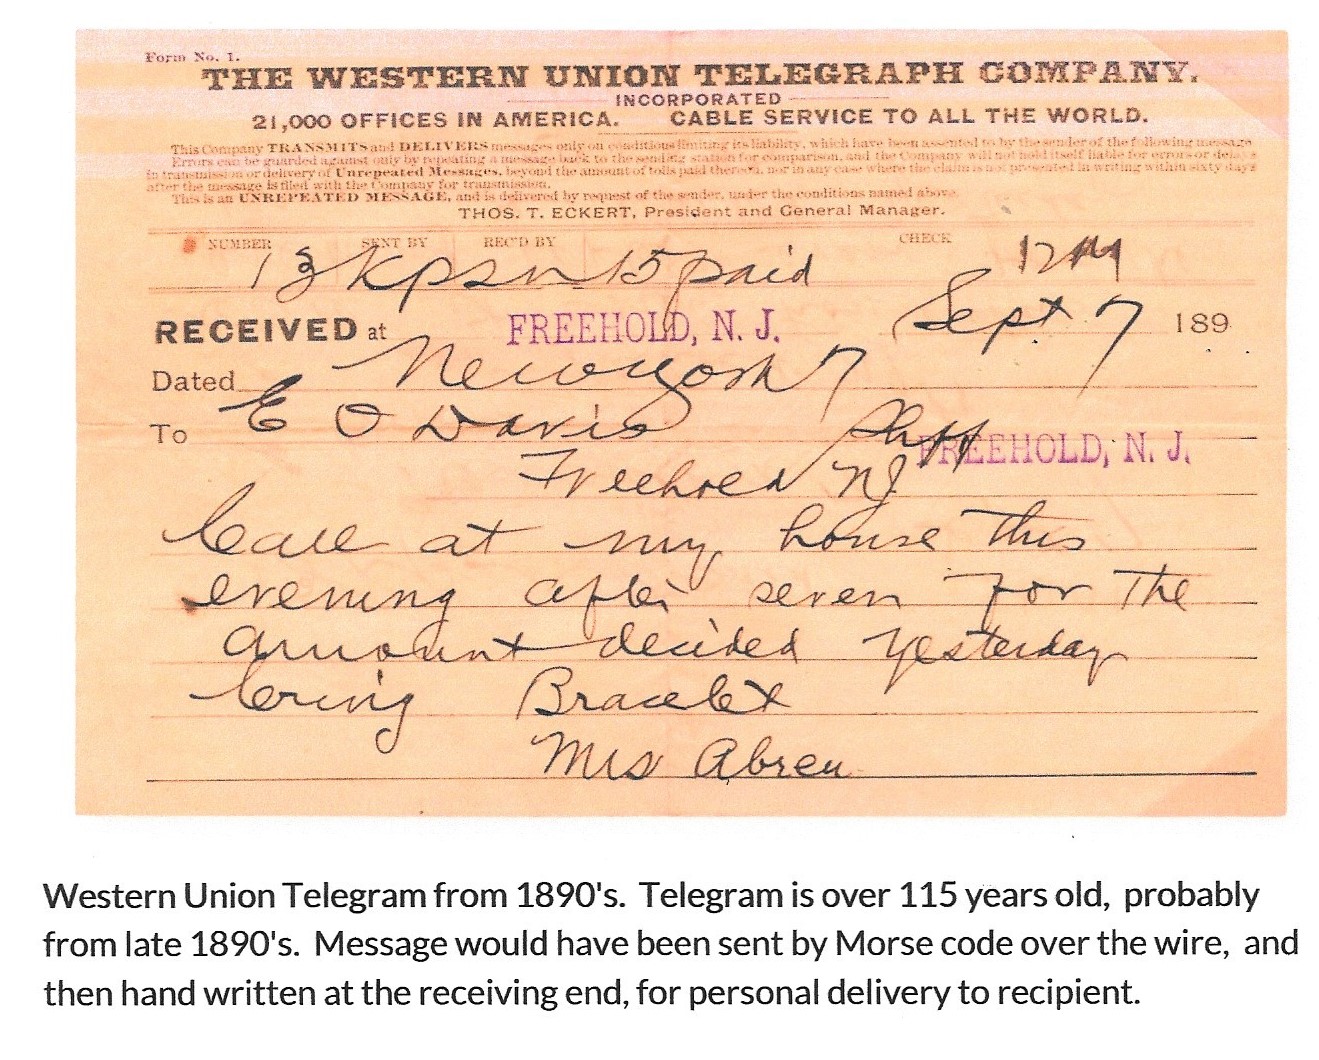 Form No. 1.
THE WESTERN UNION TELEGRAPH COMPANY.
INCORPORATED
21,000 OFFICES IN AMERICA. CABLE SERVICE TO ALL THE WORLD.
This Company TRANSMITS and DELIVERS messages only on conditions limiting its liability, which have been assented to by the sender of the following message
Errors can be guarded against only by repeating a message back to the sending station for comparison, and the Company will not hold itself liable for errors or delays
in transmission or delivery of Unrepeated Messages, beyond the amount of tolls paid thereon, nor in any case where the claim is not presented in writing within sixty days
after the message is filed with the Company for transmission.
This is an UNREPEATED MESSAGE, and is delivered by request of the sender, under the conditions named above.
THOS. T. ECKERT, President and General Manager.
NUMBER SENT BY REC'D BY CHECK
13 15 paid
RECEIVED at FREEHOLD, N. J. Sept 7 189
Dated New York 7
To E O Davis
FREEHOLD, N. J.
Freehold NJ
Call at my house this
evening after seven for The
amount decided yesterday
bring Bracelet
Mrs Abreu
Western Union Telegram from 1890's. Telegram is over 115 years old, probably
from late 1890's. Message would have been sent by Morse code over the wire, and
then hand written at the receiving end, for personal delivery to recipient.